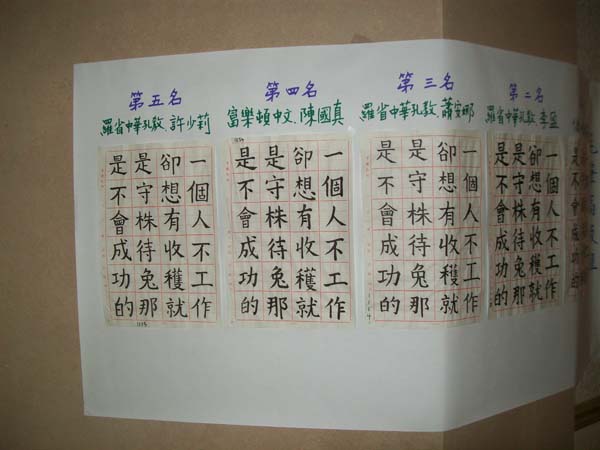 第五名
羅省中華孔教、許少莉
一個人不工作
卻想有收穫就
是守株待兔那
是不會成功的
第四名
富樂頓中文、陳國真
一個人不工作
卻想有收穫就
是守株待兔那
是不會成功的
第三名
羅省中華孔教、蕭安娜
一個人不工作
卻想有收穫就
是守株待兔那
是不會成功的
第二名
羅省中華孔教、李
一個人不工作
卻想有收穫就
是守株待兔那
是不會成功的